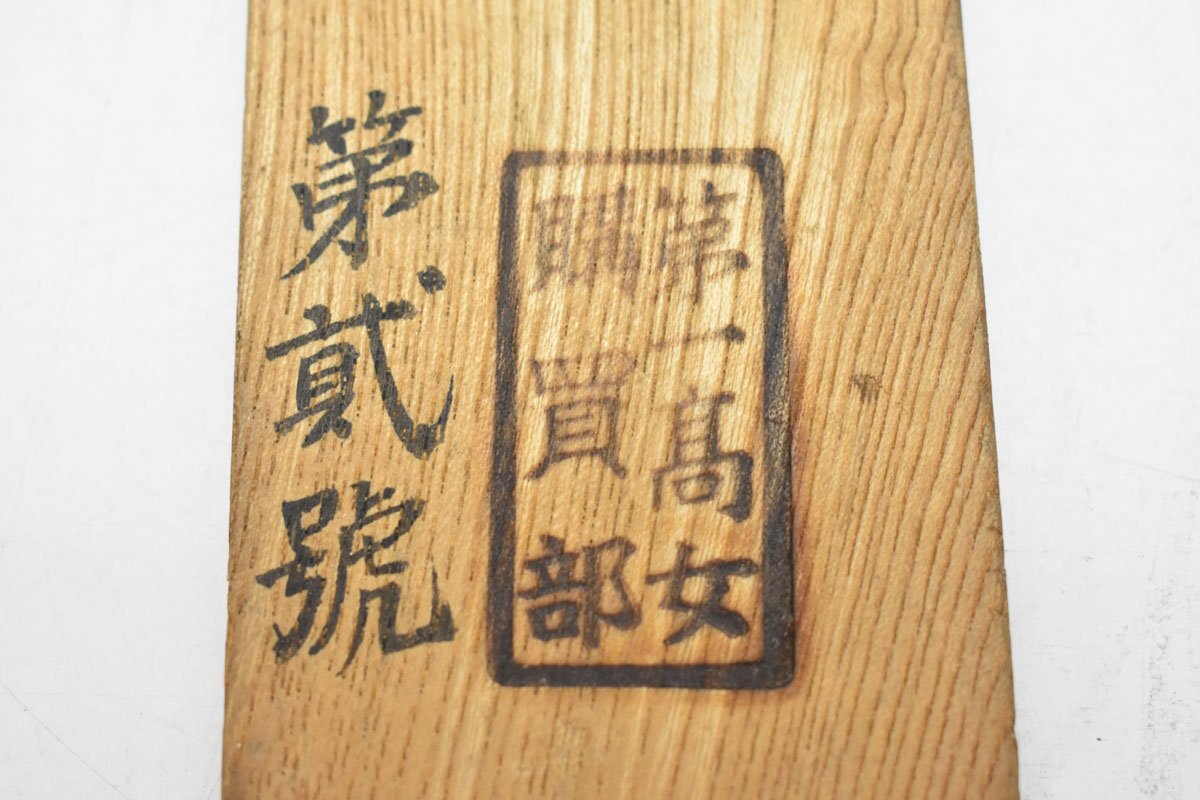 第一高女
購買部
第貳號